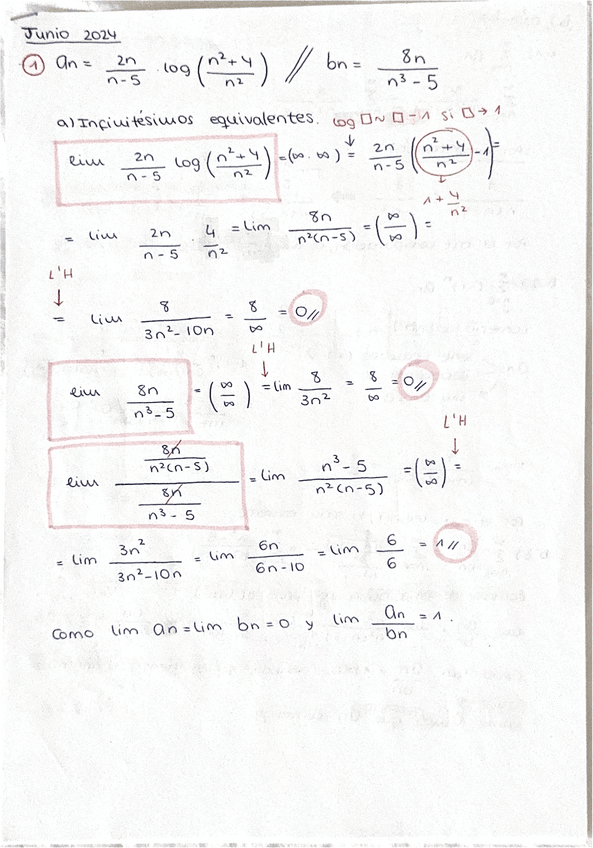 Junio 2024
① an = 2n/(n-5) · log((n²+4)/n²) // bn = 8n/(n³-5)
a) Infinitésimos equivalentes. log □ ~ □ - 1 si □ → 1
lim 2n/(n-5) log((n²+4)/n²) = (∞·∞) = 2n/(n-5) ((n²+4)/n² - 1) =
1 + 4/n²
= lim 2n/(n-5) 4/n² = lim 8n/(n²(n-5)) = (∞/∞) =
L'H
= lim 8/(3n²-10n) = 8/∞ = 0//
L'H
lim 8n/(n³-5) = (∞/∞) = lim 8/3n² = 8/∞ = 0//
L'H
lim (8n/(n²(n-5)))/(8n/(n³-5)) = lim (n³-5)/(n²(n-5)) = (∞/∞) =
= lim 3n²/(3n²-10n) = lim 6n/(6n-10) = lim 6/6 = 1//
Como lim an = lim bn = 0 y lim an/bn = 1.